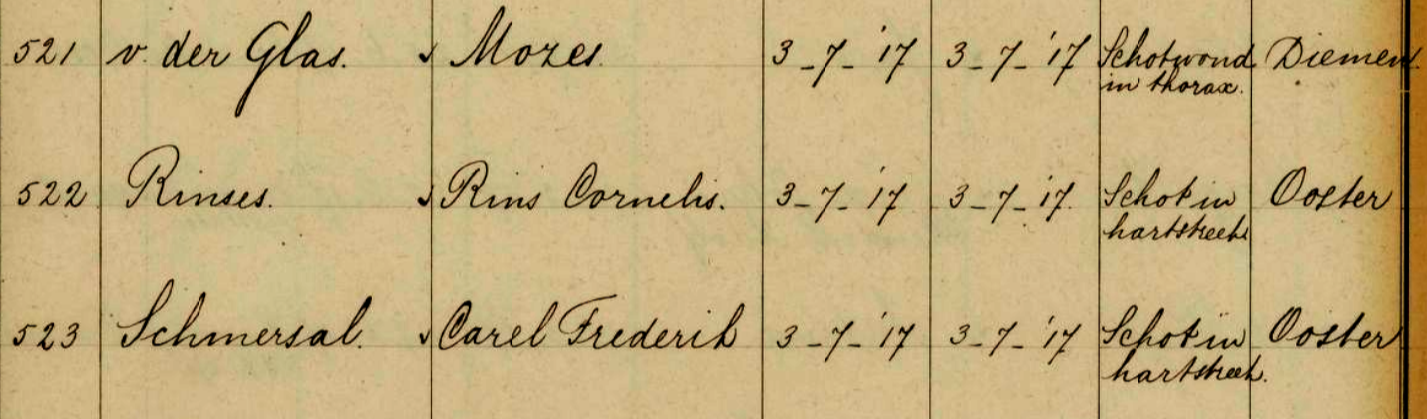 521 v. der Glas. Mozes. 3-7-'17 3-7-'17 Schotwond Diemen.
in thorax.
522 Rinses. Rins Cornelis. 3-7-'17 3-7-'17. Schot in Ooster
hartstreek
523 Schmersal. Carel Frederik 3-7-'17 3-7-'17 Schot in Ooster
hartstreek.